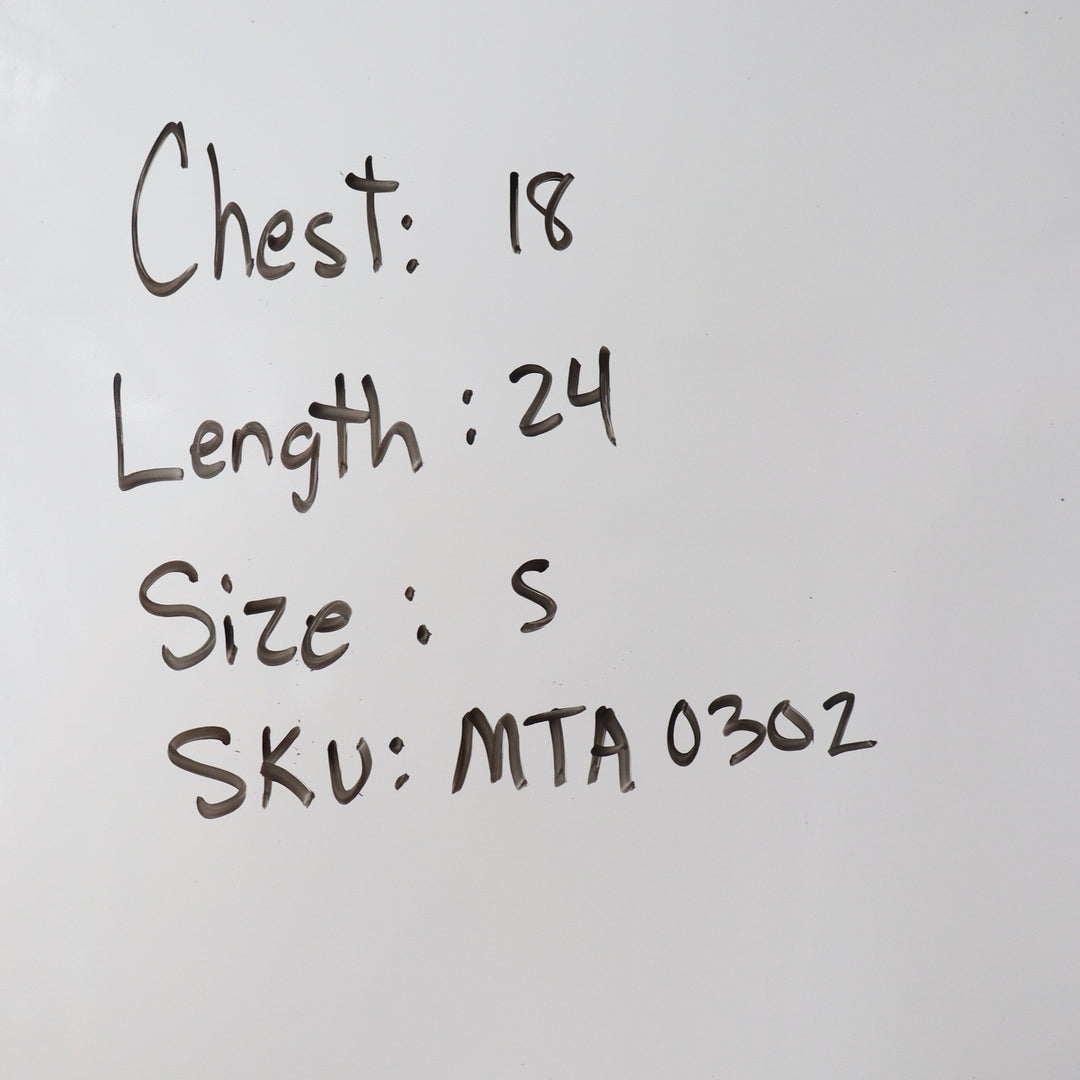 Chest: 18
Length: 24
Size: S
SKU: MTA 0302